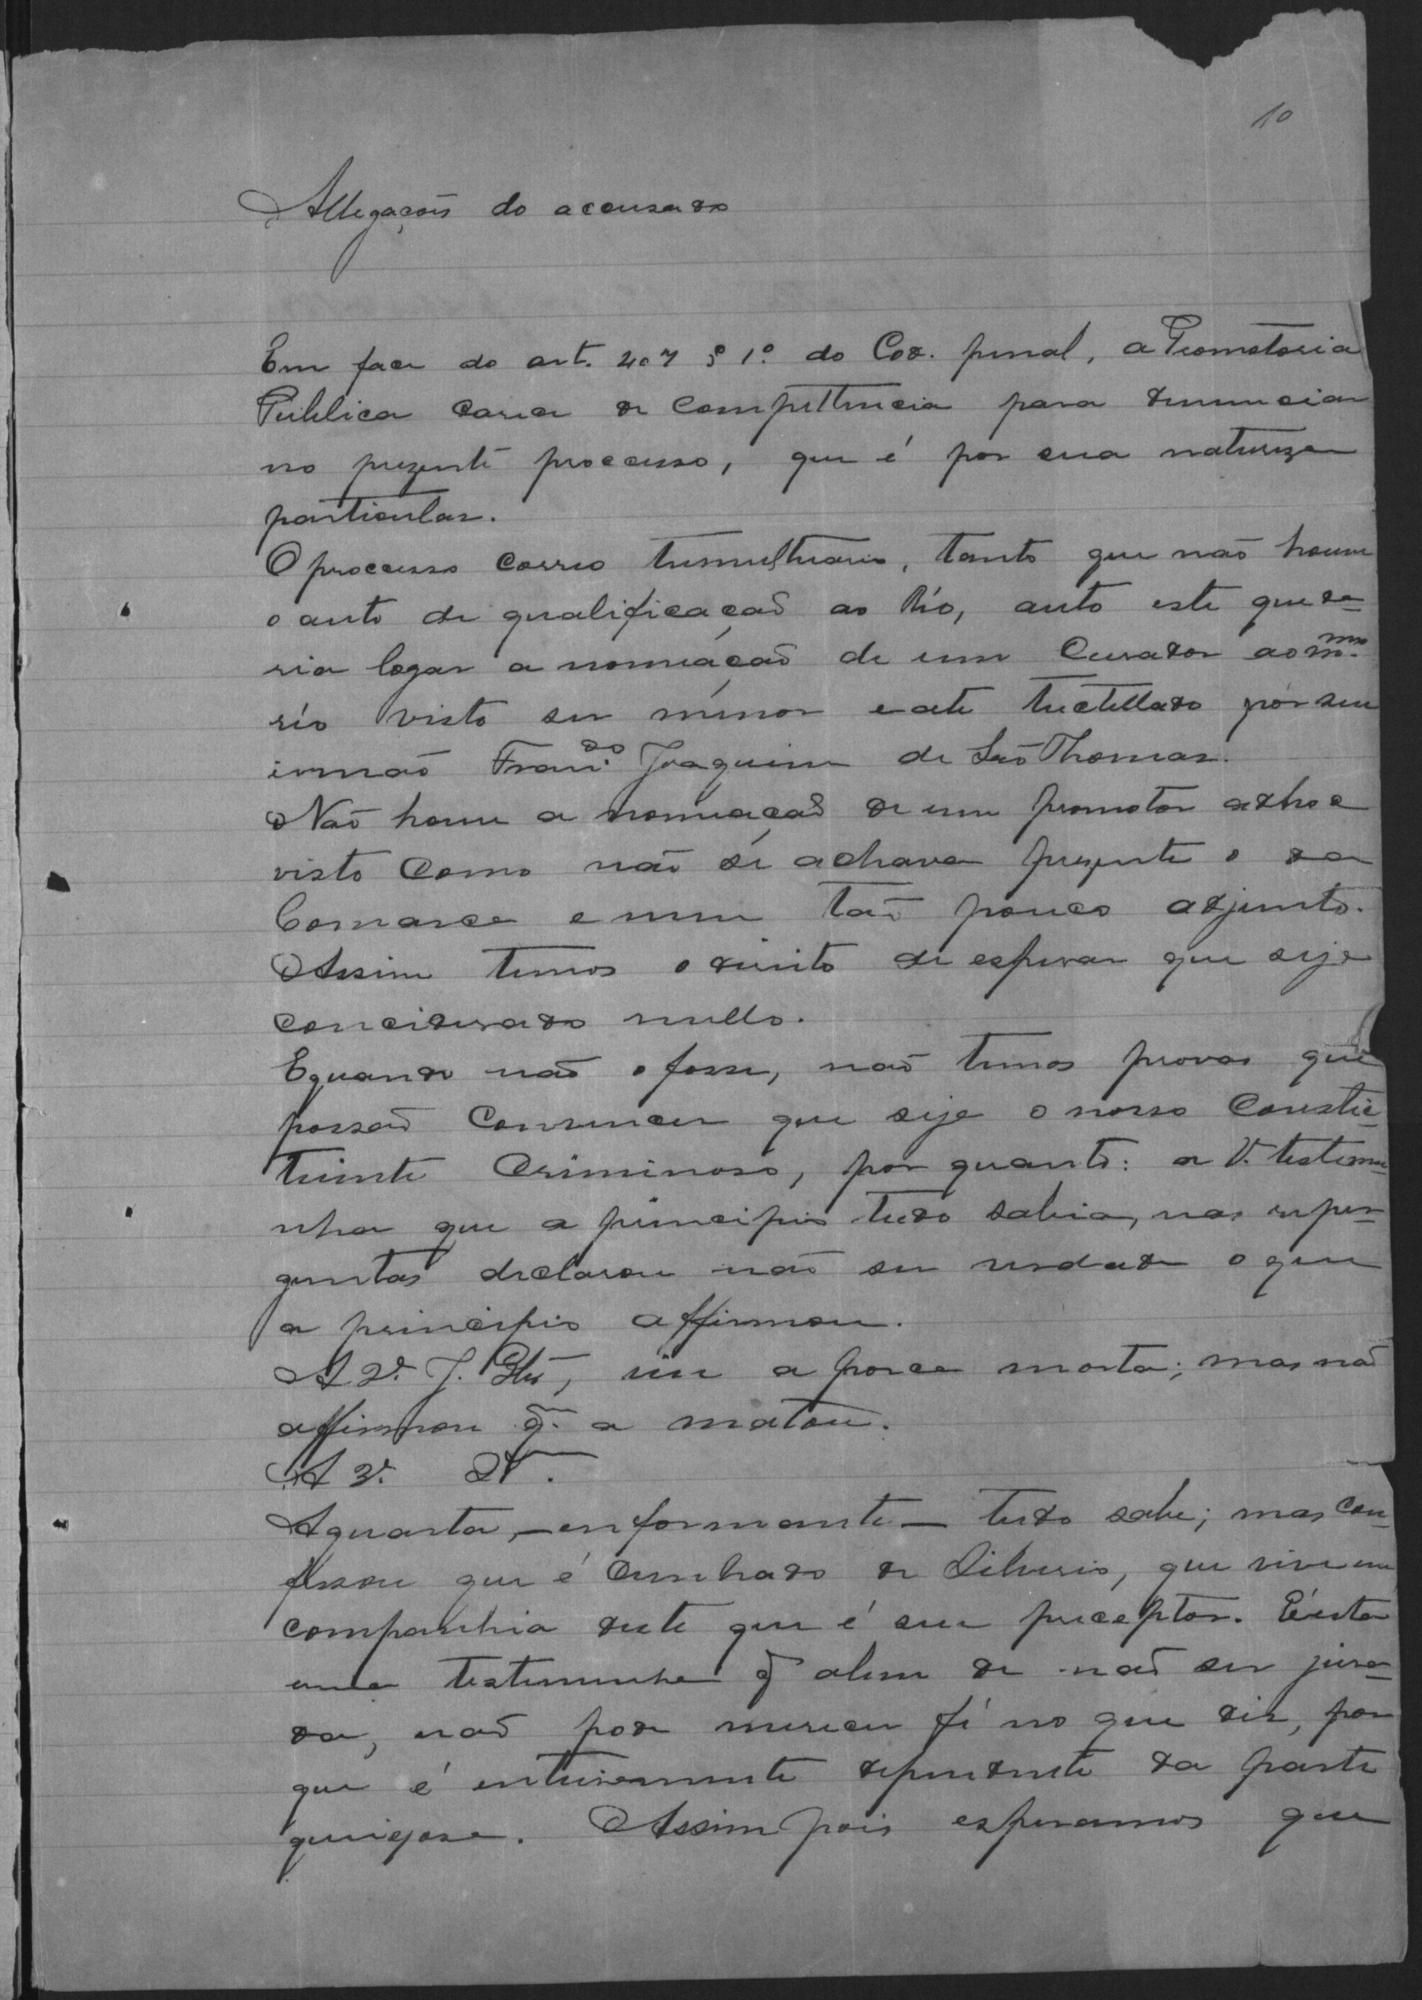 10
Allegações do accusado
Em face do art. 407 § 1º do Cod. penal, a Promotoria
Publica carece de competencia para denunciar
no prezente processo, que é por sua natureza
particular.
O processo correo tumultuario, tanto que não houve
o auto de qualificação ao Réo, auto este que da-
ria logar a nomeação de um Curador ao mmo
réo visto ser menor e até tuctellado por seu
irmão Franc. Joaquim de São Thomas.
Não houve a nomeação de um promotor adhoc
visto como não se achava prezente o da
Comarca e nem tão pouco adjunto.
Assim temos o direito de esperar que seje
conciderado nullo.
E quando não o fosse, não temos provas que
possão convencer que seje o nosso Consti-
tuinte Criminoso, por quanto: a 1ª testemu-
nha que a principio tudo sabia, nas reper-
guntas declarou não ser verdade o que
a principio affirmou.
A 2ª J. viu a porca morta; mas não
affirmou q. a matou.
A 3ª
A quarta, - enformante - tudo sabe; mas con-
fessou que é Cunhado de Silverio, que vive em
companhia deste que é seu preceptor. E' esta
uma testemunha q alem de não ser jura-
da, não pode merecer fé no que diz, por
que é inteiramente dependente da parte
queixosa. Assim pois esperamos que